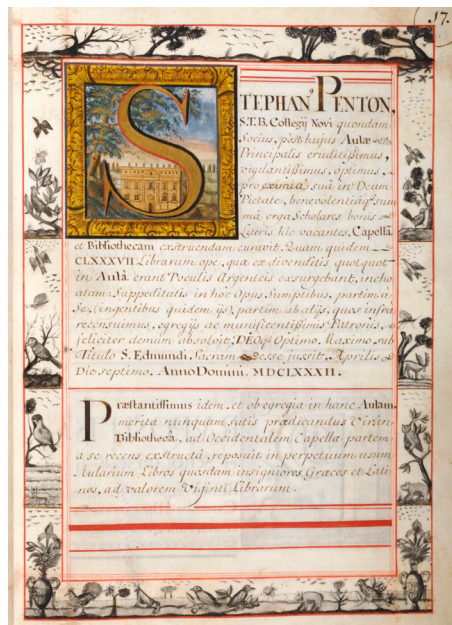 .17.
STEPHANꝰ PENTON,
S.T.B. Collegij Novi quondam
Socius, post hujus Aulæ
Principalis eruditissimus,
vigilantissimus, optimus,
pro eximiâ suâ in Deum
Pietate, benevolentiâq; sum
mâ erga Scholares bonis
Literis hîc vacantes, Capellã
et Bibliothecam exstruendam curavit. Quam quidem
CLXXXVII Librarum ope, quæ ex divenditis quotquot
in Aulâ erant Poculis Argenteis exsurgebant, incho
atam: Suppeditatis in hoc Opus Sumptibus, partim a
Se, (ingentibus quidem ijs) partim ab alijs, quos infra
recensuimus, egregijs ac munificentissimis Patronis,
feliciter demum absolvit; DEOq; Optimo Maximo, sub
Titulo S. Edmundi, Sacram esse jussit, Aprilis
Die septimo. Anno Domini. MDCLXXXII.
Præstantissimus idem, et ob egregia in hanc Aulam
merita nunquam satis prædicandus Vir, in
Bibliothecâ, ad Occidentalem Capellæ partem
a se recens exstructâ, reposuit in perpetuum usum
Aularium Libros quosdam insigniores Græcos et Lati
nos, ad valorem Viginti Librarum.